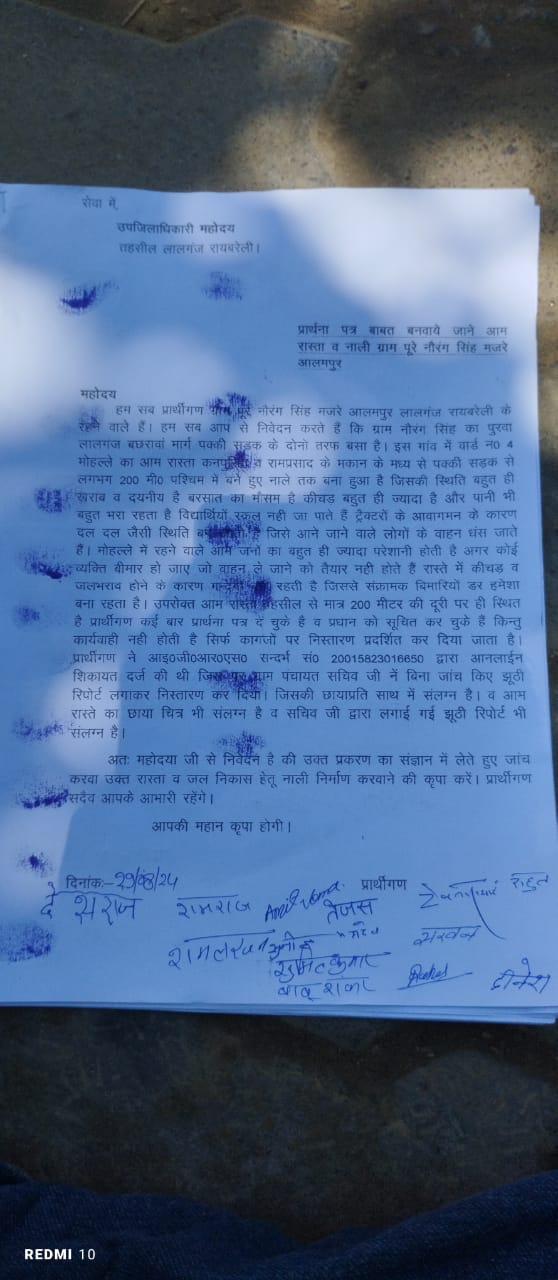 सेवा में,
उपजिलाधिकारी महोदय
तहसील लालगंज रायबरेली।
प्रार्थना पत्र बाबत बनवाये जाने आम
रास्ता व नाली ग्राम पूरे नौरंग सिंह मजरे
आलमपुर
महोदय
हम सब प्रार्थीगण ग्राम पूरे नौरंग सिंह मजरे आलमपुर लालगंज रायबरेली के
रहने वाले हैं। हम सब आप से निवेदन करते हैं कि ग्राम नौरंग सिंह का पुरवा
लालगंज बछरावां मार्ग पक्की सड़क के दोनो तरफ बसा है। इस गांव में वार्ड न0 4
मोहल्ले का आम रास्ता व रामप्रसाद के मकान के मध्य से पक्की सड़क से
लगभग 200 मी0 पश्चिम में बने हुए नाले तक बना हुआ है जिसकी स्थिति बहुत ही
खराब व दयनीय है बरसात का मौसम है कीचड़ बहुत ही ज्यादा है और पानी भी
बहुत भरा रहता है विद्यार्थियों स्कूल नही जा पाते हैं ट्रैक्टरों के आवागमन के कारण
दल दल जैसी स्थिति है जिसे आने जाने वाले लोगों के वाहन धंस जाते
हैं। मोहल्ले में रहने वाले आम जनों का बहुत ही ज्यादा परेशानी होती है अगर कोई
व्यक्ति बीमार हो जाए जो वाहन ले जाने को तैयार नही होते हैं रास्ते में कीचड़ व
जलभराव होने के कारण रहती है जिससे संक्रामक बिमारियों डर हमेशा
बना रहता है। उपरोक्त आम रास्ता तहसील से मात्र 200 मीटर की दूरी पर ही स्थित
है प्रार्थीगण कई बार प्रार्थना पत्र दे चुके है व प्रधान को सूचित कर चुके हैं किन्तु
कार्यवाही नही होती है सिर्फ कागजों पर निस्तारण प्रदर्शित कर दिया जाता है।
प्रार्थीगण ने आइ0जी0आर0एस0 सन्दर्भ सं0 20015823016650 द्वारा आनलाईन
शिकायत दर्ज की थी जिस पर ग्राम पंचायत सचिव जी नें बिना जांच किए झूठी
रिपोर्ट लगाकर निस्तारण कर दिया। जिसकी छायाप्रति साथ में संलग्न है। व आम
रास्ते का छाया चित्र भी संलग्न है व सचिव जी द्वारा लगाई गई झूठी रिपोर्ट भी
संलग्न है।
अतः महोदया जी से निवेदन है की उक्त प्रकरण का संज्ञान में लेते हुए जांच
करवा उक्त रास्ता व जल निकास हेतू नाली निर्माण करवाने की कृपा करें। प्रार्थीगण
सदैव आपके आभारी रहेंगे।
आपकी महान कृपा होगी।
दिनांकः-29/08/24 प्रार्थीगण राहुल
देशराज रामराज तेजस
रामलखन सरवन
सुमित कुमार
दीनेश
REDMI 10